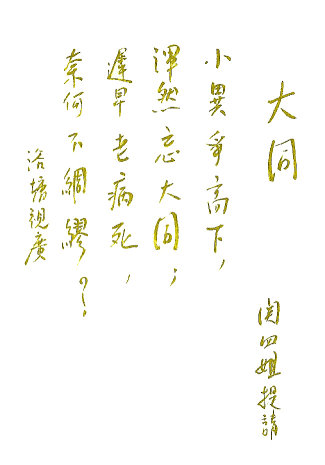 大同
関四姐提請
小異爭高下，
渾然忘大同；
遲早老病死，
奈何不綢繆？！
洛塘視廣